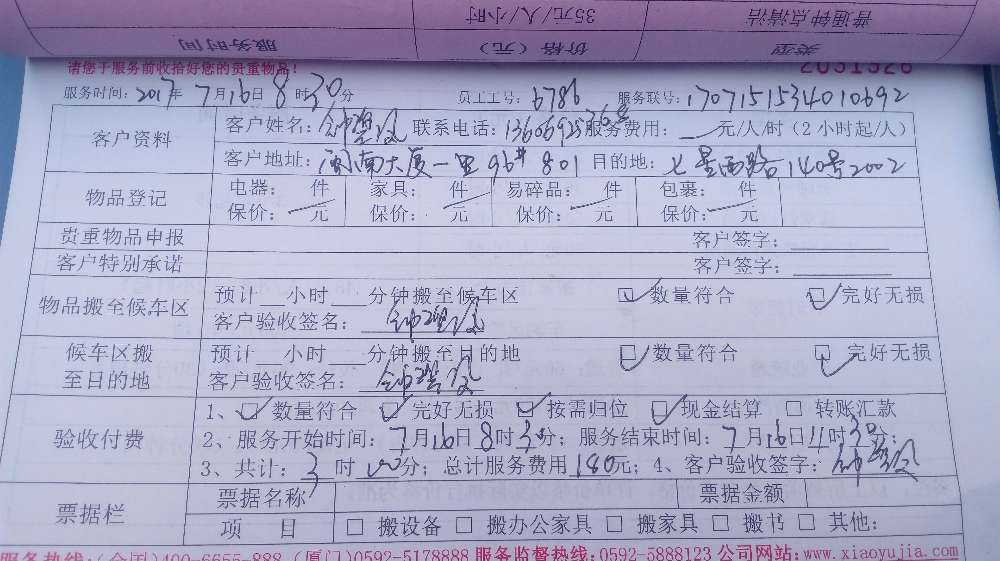 普通钟点清洁 35元/人/小时
类型 价格（元） 服务时间
请您于服务前收拾好您的贵重物品！ 2031326
服务时间：2017年7月16日8时30分 员工工号：6786 服务联号：1707151534010692
客户资料 客户姓名： 联系电话： 服务费用：元/人/时（2小时起/人）
客户地址：闽南大厦一里96# 801 目的地：七星西路140号2002
物品登记 电器：件 家具：件 易碎品：件 包裹：件
保价：元 保价：元 保价：元 保价：元
贵重物品申报 客户签字：
客户特别承诺 客户签字：
物品搬至候车区 预计__小时___分钟搬至候车区 ☑数量符合 ☑完好无损
客户验收签名：
候车区搬至目的地 预计__小时___分钟搬至目的地 ☑数量符合 ☑完好无损
客户验收签名：
验收付费 1、☑数量符合 ☑完好无损 ☑按需归位 ☑现金结算 □转账汇款
2、服务开始时间：7月16日8时30分；服务结束时间：7月16日11时30分；
3、共计：3时00分；总计服务费用180元；4、客户验收签字：
票据栏 票据名称 票据金额
项 目 □搬设备 □搬办公家具 □搬家具 □搬书 □其他：
服务热线：（全国）400-6655-888（厦门）0592-5178888 服务监督热线：0592-5888123 公司网站：www.xiaoyujia.com